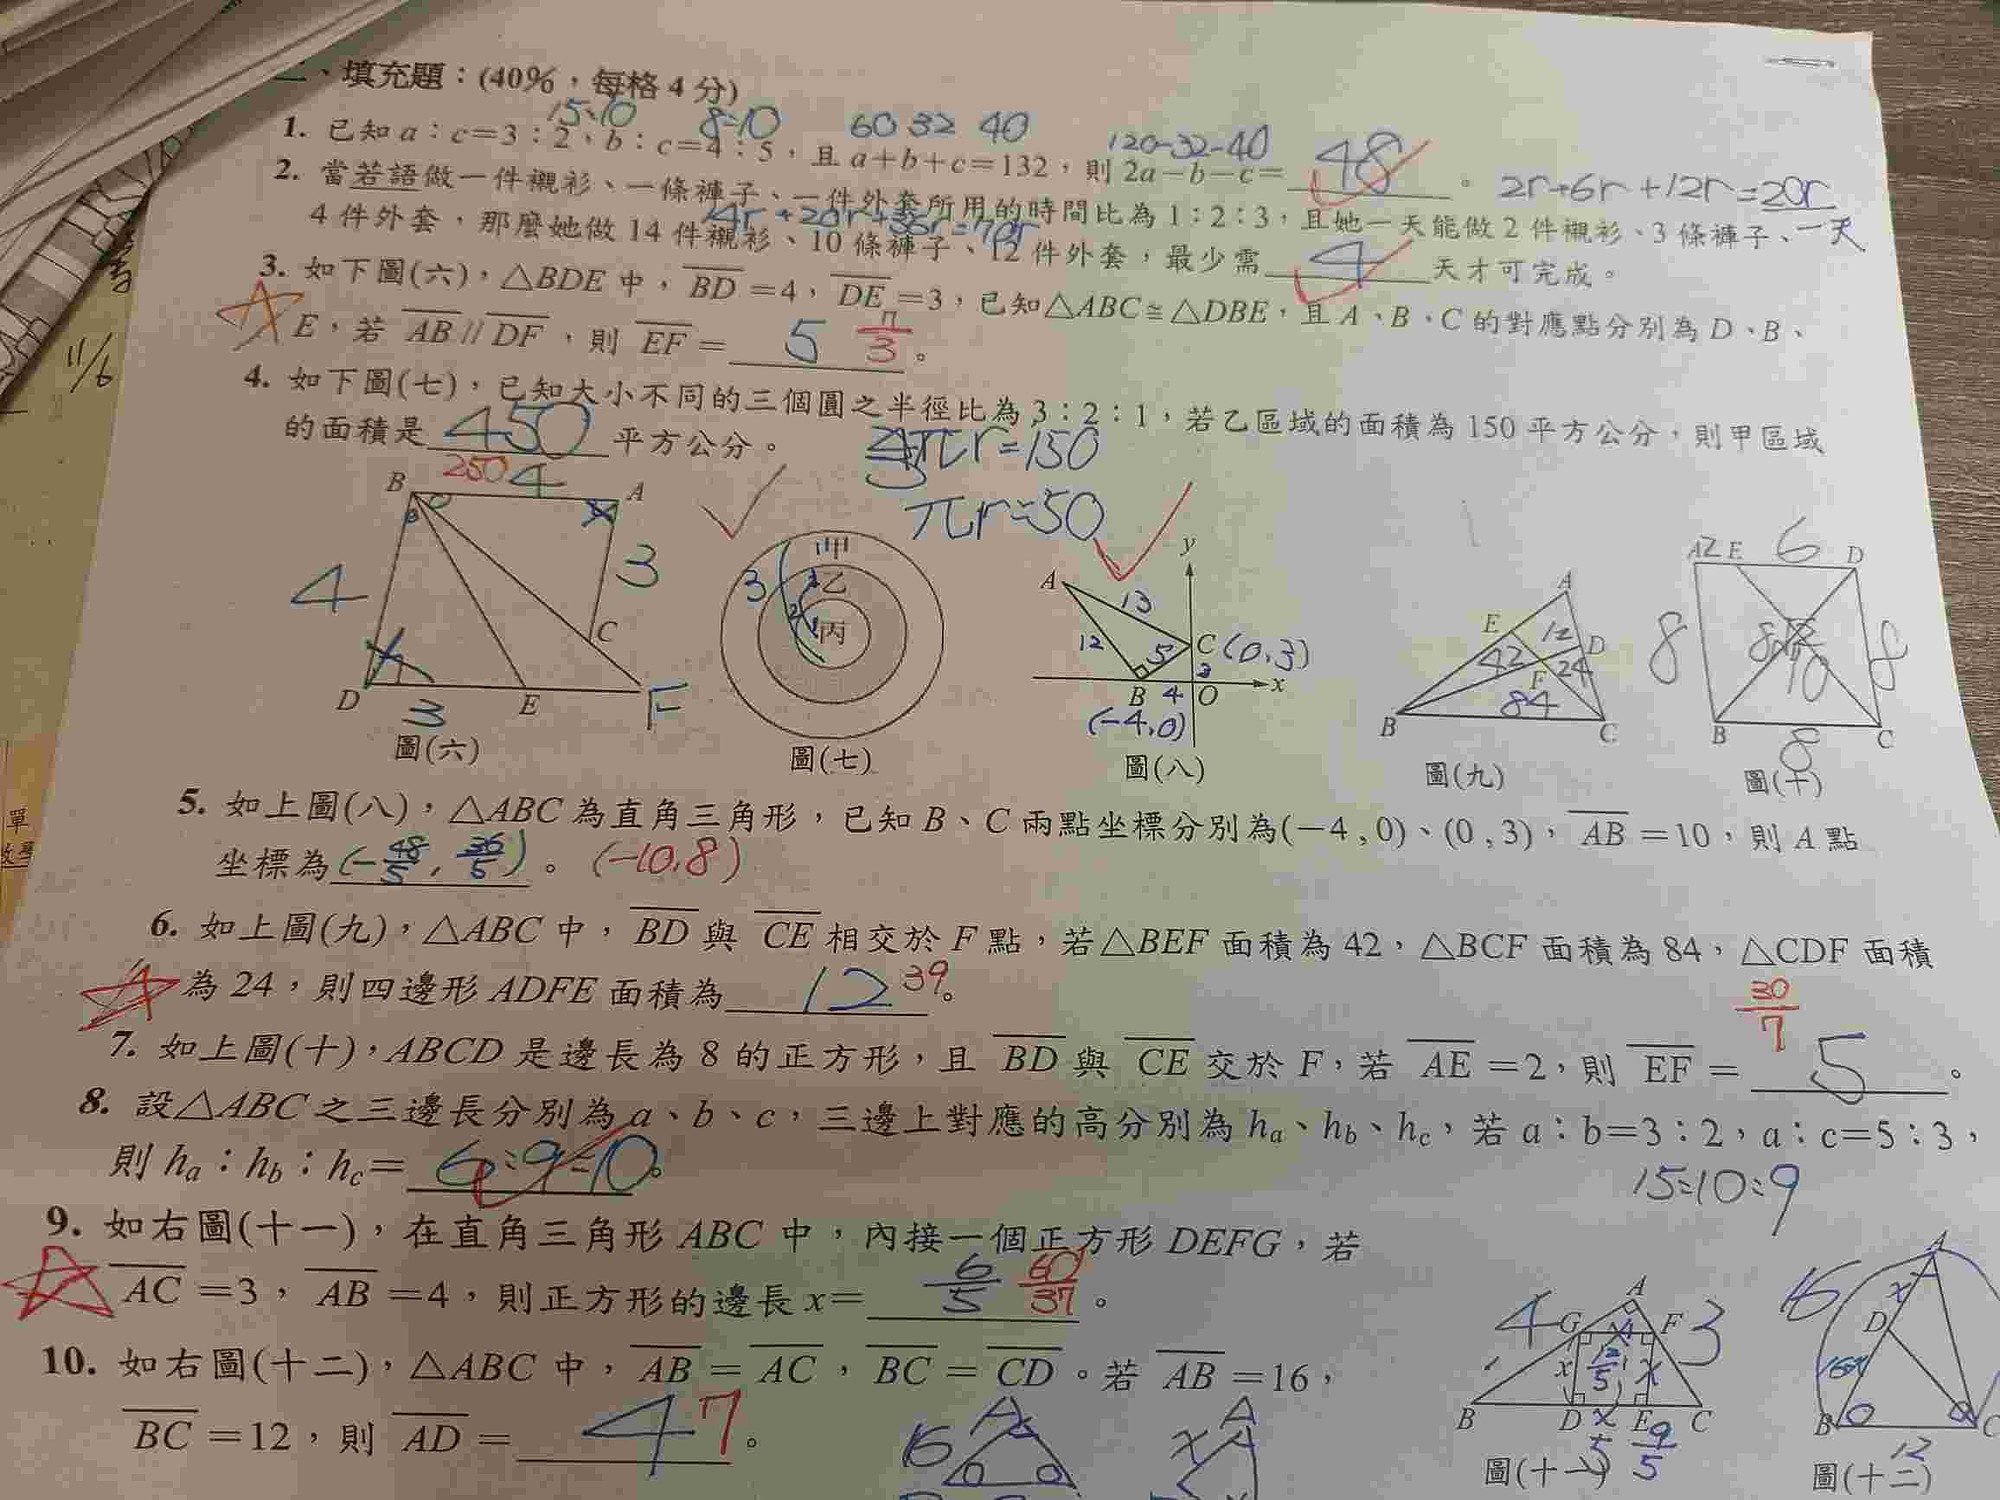 二、填充題：(40%，每格 4 分)
15:10 8:10 60 32 40 120-32-40
1. 已知 a：c=3：2、b：c=4：5，且 a+b+c=132，則 2a-b-c= 48 。
2r+6r+12r=20r
2. 當若語做一件襯衫、一條褲子、一件外套所用的時間比為 1：2：3，且她一天能做 2 件襯衫、3 條褲子、
一天
4 件外套，那麼她做 14 件襯衫、10 條褲子、12 件外套，最少需 4 天才可完成。
3. 如下圖(六)，△BDE 中，BD=4、DE=3，已知△ABC≅△DBE，且 A、B、C 的對應點分別為 D、B、
E，若 AB//DF，則 EF= 5 7/3 。
4. 如下圖(七)，已知大小不同的三個圓之半徑比為 3：2：1，若乙區域的面積為 150 平方公分，則甲區域
的面積是 450 平方公分。
250
πr=150
πr=50
B 4 A
4 3
C
D 3 E F
圖(六)
甲
3 乙
丙
圖(七)
y
A 13
12 5 C (0,3)
3
B 4 O x
(-4,0)
圖(八)
A
E 12 D
42 F 24
84
B C
圖(九)
A 2 E 6 D
8 8
B 8 C
圖(十)
5. 如上圖(八)，△ABC 為直角三角形，已知 B、C 兩點坐標分別為(-4 , 0)、(0 , 3)，AB=10，則 A 點
坐標為 (-48/5, 36/5) 。 (-10,8)
6. 如上圖(九)，△ABC 中，BD 與 CE 相交於 F 點，若△BEF 面積為 42，△BCF 面積為 84，△CDF 面積
為 24，則四邊形 ADFE 面積為 12 39 。
7. 如上圖(十)，ABCD 是邊長為 8 的正方形，且 BD 與 CE 交於 F，若 AE=2，則 EF= 5 。
30/7
8. 設△ABC 之三邊長分別為 a、b、c，三邊上對應的高分別為 ha、hb、hc，若 a：b=3：2，a：c=5：3，
則 ha：hb：hc= 6:9:10 。
15:10:9
9. 如右圖(十一)，在直角三角形 ABC 中，內接一個正方形 DEFG，若
AC=3，AB=4，則正方形的邊長 x= 6/5 60/37 。
10. 如右圖(十二)，△ABC 中，AB=AC，BC=CD。若 AB=16，
BC=12，則 AD= 4 7 。
A
4 G F 3
x x
B D x E C
9/5
圖(十一)
A
16 x
D
B 12 C
圖(十二)
A
16
A
x
11/6
單